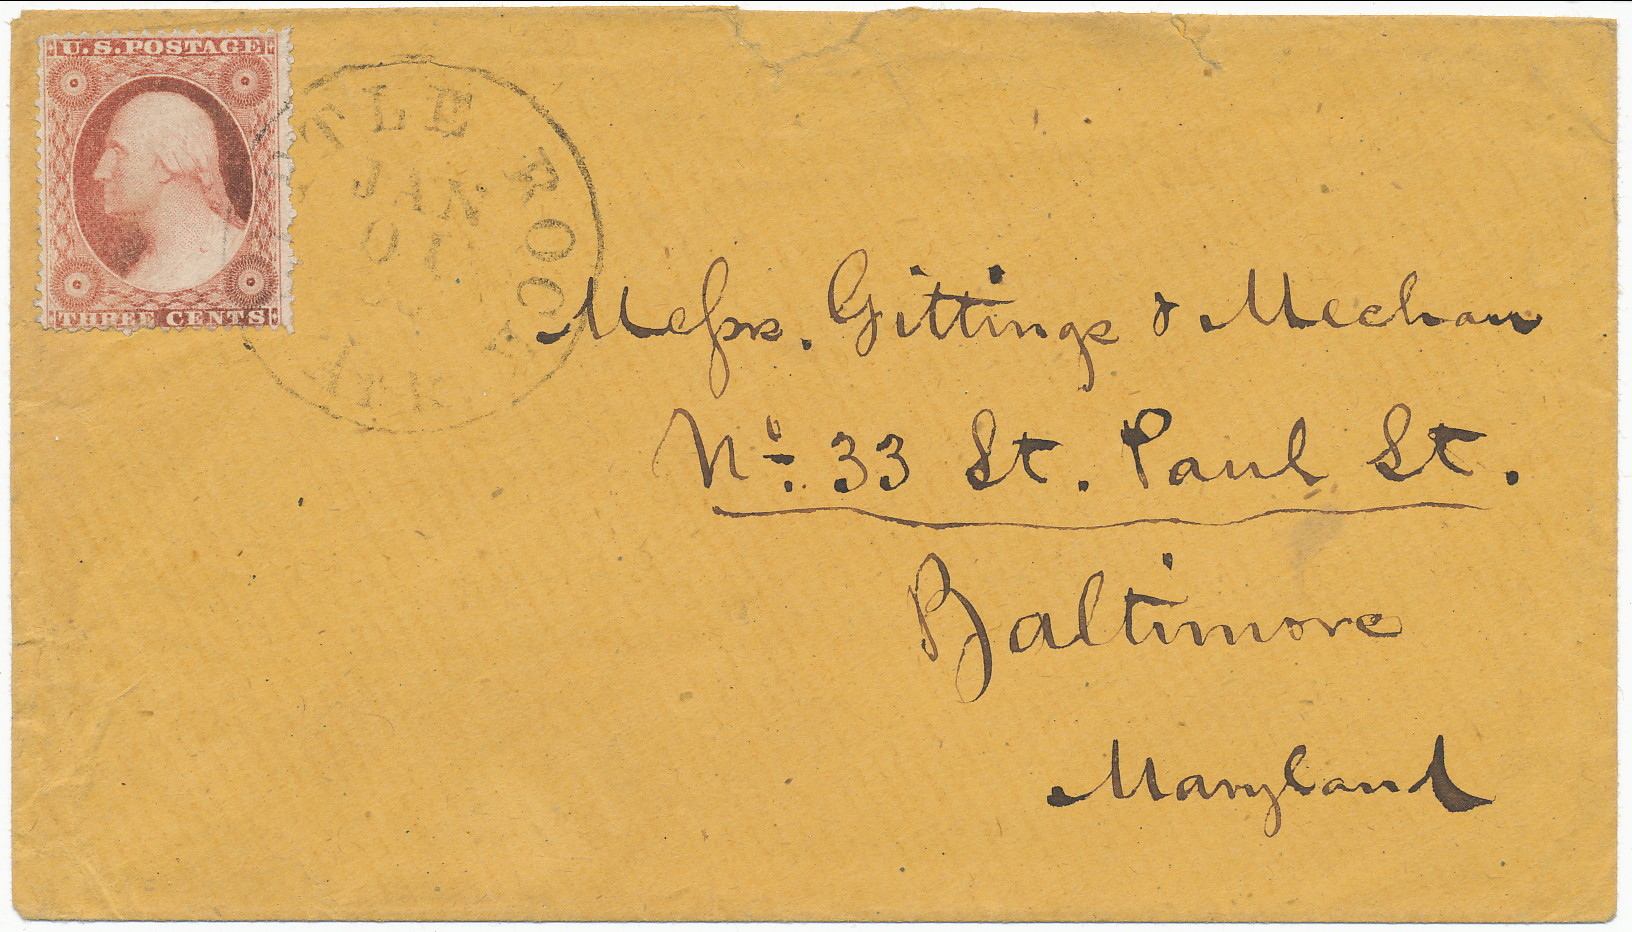 U.S. POSTAGE
THREE CENTS
TTLE ROCK
JAN
ARK
Messrs. Gittings & Mechan
No. 33 St. Paul St.
Baltimore
Maryland